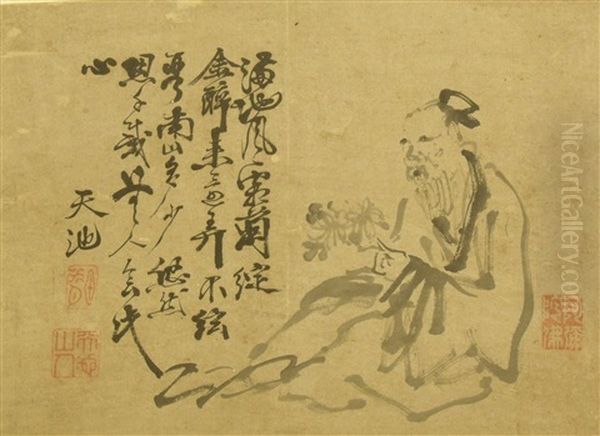 滿地風霜菊綻
金醉來還弄不絃
琴南山多少悠然
思千載無人會此
心
天池
NiceArtGallery.com